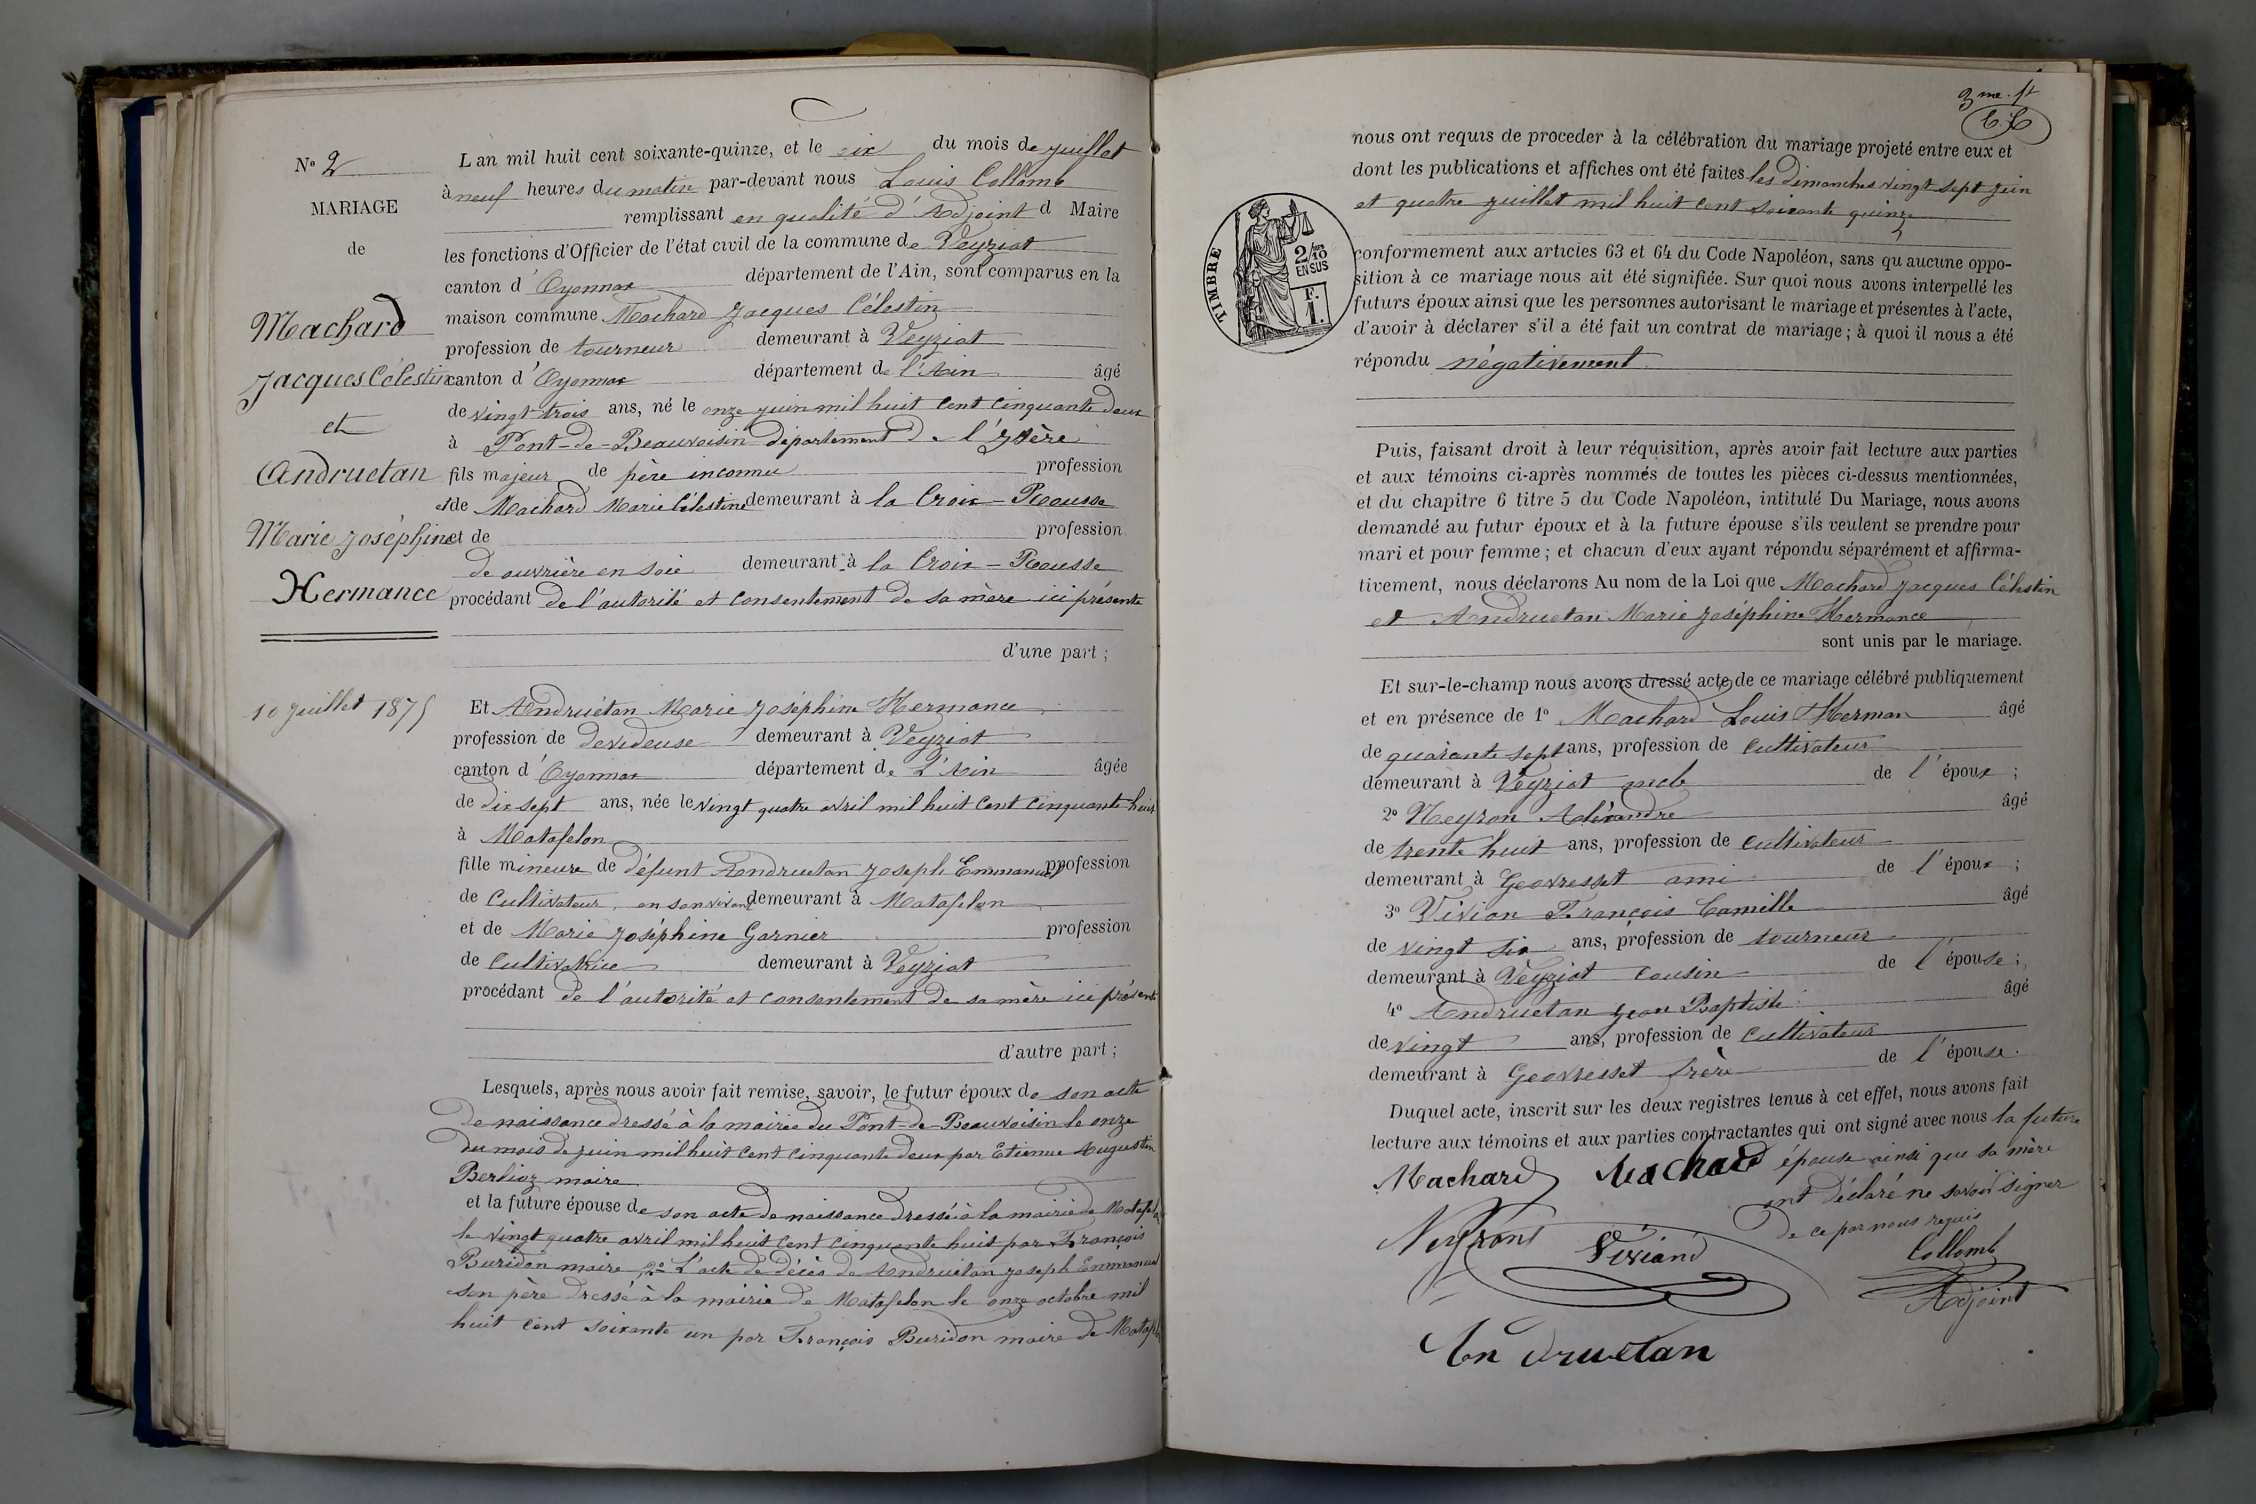 N° 2
MARIAGE
de
Machard
Jacques Célestin
et
Andruetan
Marie Joséphine
Hermance
10 Juillet 1875
L'an mil huit cent soixante-quinze, et le dix du mois de juillet
à neuf heures du matin par-devant nous Louis Collomb
remplissant en qualité d'Adjoint d Maire
les fonctions d'Officier de l'état civil de la commune de Veyziat
canton d'Oyonnax département de l'Ain, sont comparus en la
maison commune Machard Jacques Célestin
profession de tourneur demeurant à Veyziat
canton d'Oyonnax département de l'Ain âgé
de vingt trois ans, né le onze juin mil huit cent cinquante deux
à Pont-de-Beauvoisin département de l'Isère
fils majeur de père inconnu profession
et de Machard Marie Célestine demeurant à la Croix-Rousse
et de profession
de ouvrière en soie demeurant à la Croix-Rousse
procédant de l'autorité et consentement de sa mère ici présente
d'une part ;
Et Andruétan Marie Joséphine Hermance
profession de devideuse demeurant à Veyziat
canton d'Oyonnax département de L'Ain âgée
de dix sept ans, née le vingt quatre avril mil huit cent cinquante huit
à Matafelon
fille mineure de défunt Andruetan Joseph Emmanuel profession
de Cultivateur en son vivant demeurant à Matafelon
et de Marie Joséphine Garnier profession
de Cultivatrice demeurant à Veyziat
procédant de l'autorité et consentement de sa mère ici présente
d'autre part ;
Lesquels, après nous avoir fait remise, savoir, le futur époux de son acte
de naissance dressé à la mairie du Pont-de-Beauvoisin le onze
du mois de juin mil huit cent cinquante deux par Etienne Augustin
Berlioz maire
et la future épouse de son acte de naissance dressé à la mairie de Matafelon
le vingt quatre avril mil huit cent cinquante huit par François
Buridon maire 2° L'acte de décès de Andruetan Joseph Emmanuel
son père dressé à la mairie de Matafelon le onze octobre mil
huit cent soixante un par François Buridon maire de Matafelon
3me ft
nous ont requis de proceder à la célébration du mariage projeté entre eux et
dont les publications et affiches ont été faites les dimanches vingt sept juin
et quatre juillet mil huit cent soixante quinze
TIMBRE
2/10
EN SUS
F.
1.
conformement aux articles 63 et 64 du Code Napoléon, sans qu'aucune oppo-
sition à ce mariage nous ait été signifiée. Sur quoi nous avons interpellé les
futurs époux ainsi que les personnes autorisant le mariage et présentes à l'acte,
d'avoir à déclarer s'il a été fait un contrat de mariage ; à quoi il nous a été
répondu négativement
Puis, faisant droit à leur réquisition, après avoir fait lecture aux parties
et aux témoins ci-après nommés de toutes les pièces ci-dessus mentionnées,
et du chapitre 6 titre 5 du Code Napoléon, intitulé Du Mariage, nous avons
demandé au futur époux et à la future épouse s'ils veulent se prendre pour
mari et pour femme ; et chacun d'eux ayant répondu séparément et affirma-
tivement, nous déclarons Au nom de la Loi que Machard Jacques Célestin
et Andruetan Marie Joséphine Hermance
sont unis par le mariage.
Et sur-le-champ nous avons dressé acte de ce mariage célébré publiquement
et en présence de 1° Machard Louis Herman âgé
de quarante sept ans, profession de Cultivateur
demeurant à Veyziat oncle de l'époux ;
2° Neyron Alexandre âgé
de trente huit ans, profession de Cultivateur
demeurant à Geovresset ami de l'époux ;
3° Vivian François Camille âgé
de vingt six ans, profession de tourneur
demeurant à Veyziat cousin de l'épouse ;
4° Andruetan Jean Baptiste âgé
de vingt ans, profession de Cultivateur
demeurant à Geovresset frère de l'épouse.
Duquel acte, inscrit sur les deux registres tenus à cet effet, nous avons fait
lecture aux témoins et aux parties contractantes qui ont signé avec nous la future
épouse ainsi que sa mère
ont déclaré ne savoir signer
de ce par nous requis
Machard Machard
Neyront Viviand Collomb
Adjoint
Andruetan